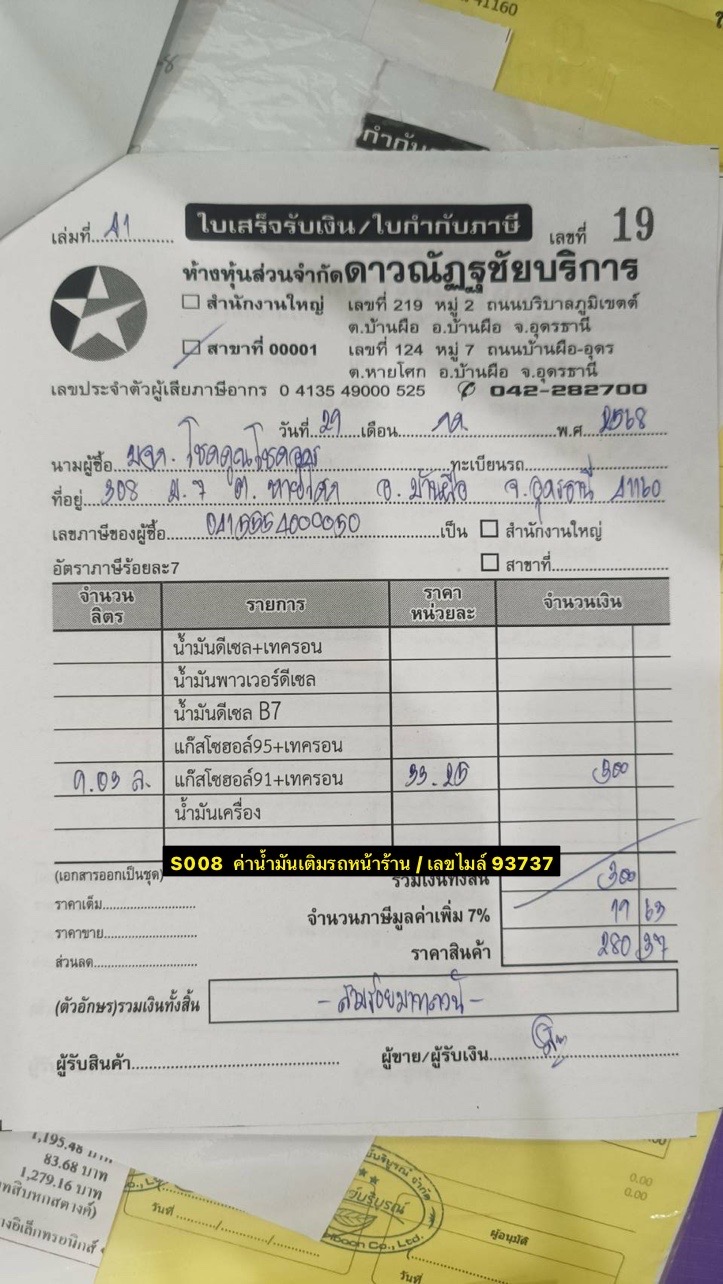 41160
กำกับ
เล่มที่ 41 ใบเสร็จรับเงิน/ใบกำกับภาษี เลขที่ 19
ห้างหุ้นส่วนจำกัดดาวณัฏฐชัยบริการ
สำนักงานใหญ่ เลขที่ 219 หมู่ 2 ถนนบริบาลภูมิเขตต์
ต.บ้านผือ อ.บ้านผือ จ.อุดรธานี
สาขาที่ 00001 เลขที่ 124 หมู่ 7 ถนนบ้านผือ-อุดร
ต.หายโศก อ.บ้านผือ จ.อุดรธานี
เลขประจำตัวผู้เสียภาษีอากร 0 4135 49000 525 042-282700
วันที่ 29 เดือน พ.ศ. 2568
นามผู้ซื้อ ทะเบียนรถ
ที่อยู่ 308 ม.7 ต. หายโศก อ. บ้านผือ จ.อุดรธานี 41160
เลขภาษีของผู้ซื้อ 0415554000050 เป็น สำนักงานใหญ่
อัตราภาษีร้อยละ7 สาขาที่
จำนวน ลิตร รายการ ราคา หน่วยละ จำนวนเงิน
น้ำมันดีเซล+เทครอน
น้ำมันพาวเวอร์ดีเซล
น้ำมันดีเซล B7
แก๊สโซฮอล์95+เทครอน
9.03 ล. แก๊สโซฮอล์91+เทครอน 33.25 300
น้ำมันเครื่อง
S008 ค่าน้ำมันเติมรถหน้าร้าน / เลขไมล์ 93737
(เอกสารออกเป็นชุด) รวมเงินทั้งสิ้น 300
ราคาเต็ม จำนวนภาษีมูลค่าเพิ่ม 7% 19 63
ราคาขาย
ส่วนลด ราคาสินค้า 280 37
(ตัวอักษร)รวมเงินทั้งสิ้น - สามร้อยบาทถ้วน -
ผู้รับสินค้า ผู้ขาย/ผู้รับเงิน
1,195.48 บาท
83.68 บาท
1,279.16 บาท
0.00
0.00
วันที่
ผู้อนุมัติ
วันที่